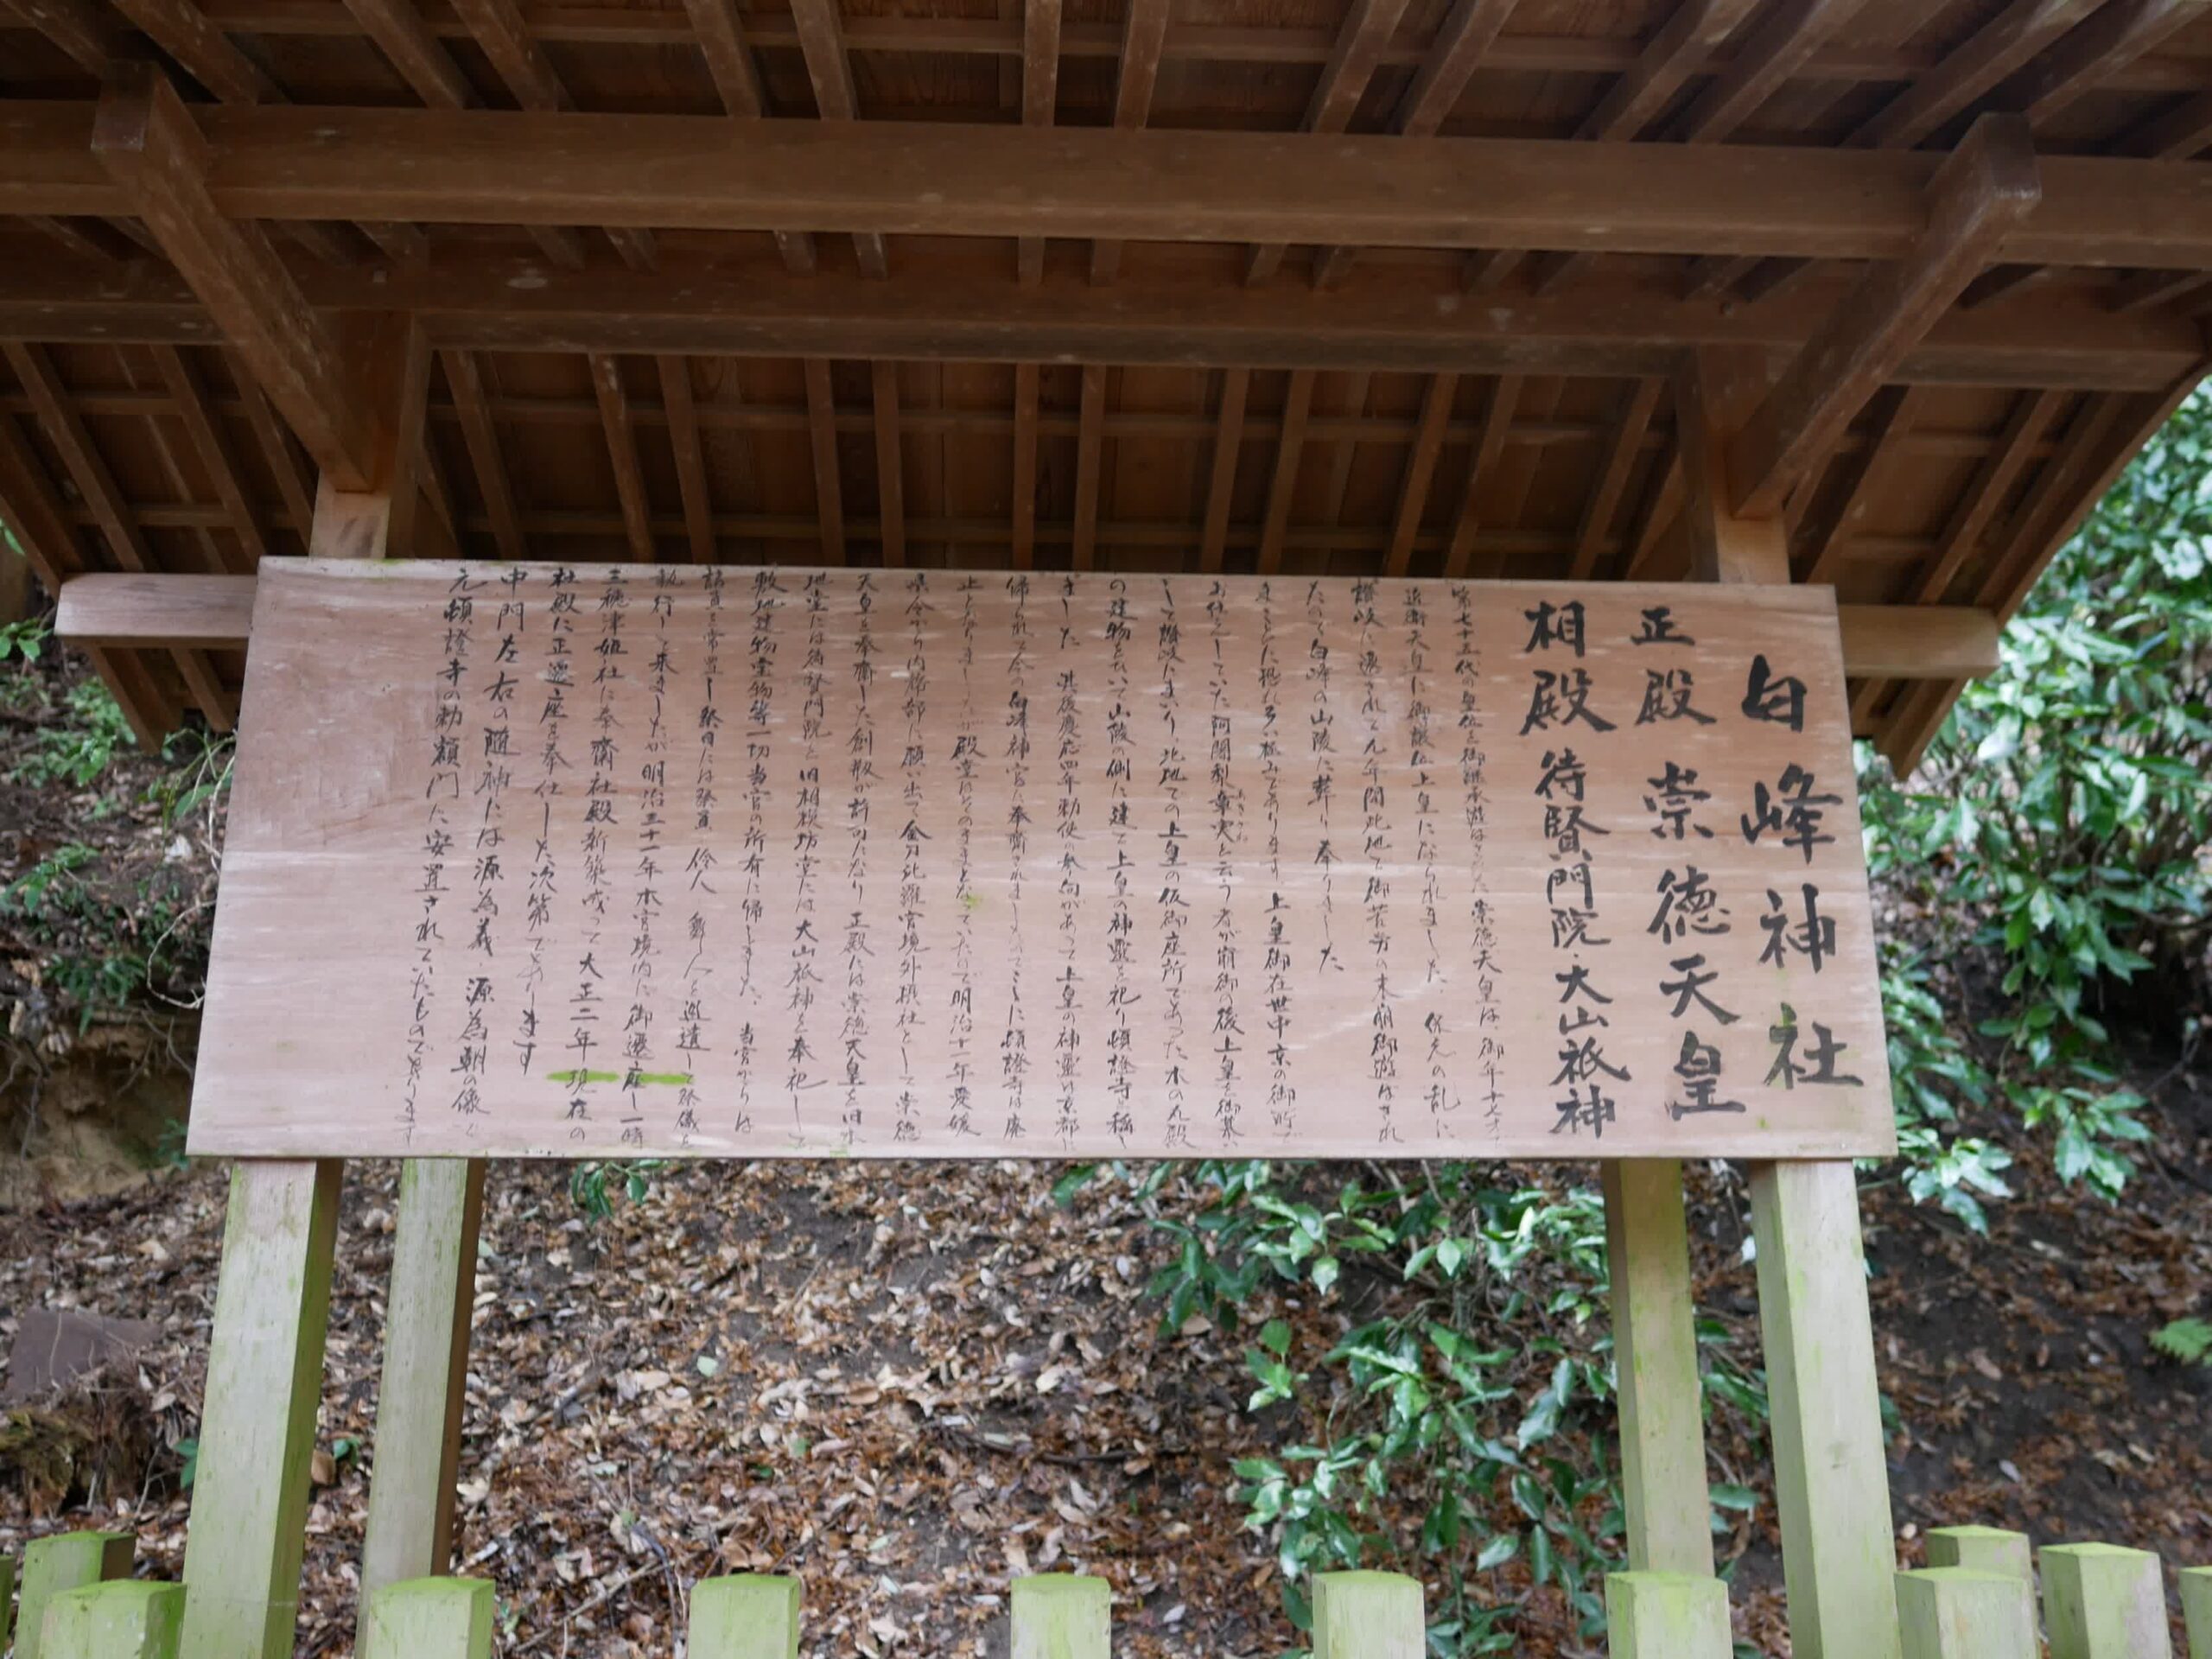 白峰神社
正殿 崇徳天皇
相殿 待賢門院・大山祇神
第七十五代の皇位を御継承遊ばされた崇徳天皇は、御年
近衛天皇に御譲位上皇になられました、保元の乱に
讃岐に遷されて九年間此地で御苦労の末崩御遊ばされ
たので白峰の山陵に葬り奉りました
極みであります 上皇御在世中京の御所で
お仕えしていた阿闍梨章実と云う者が崩御の後上皇を御慕い
して讃岐にまいり、此地での上皇の仮御座所であった木の丸殿
の建物をひいて山陵の側に建て上皇の神霊を祀り頓證寺と称し
ました 其後慶応四年勅使の参向があって上皇の神霊は京都に
帰られて今の白峰神宮に奉齋されましたのでここに頓證寺は廃
止となりましたが殿堂はそのままとなっていたので明治十一年愛媛
県令から内務部に願い出て金刀比羅宮境外摂社として崇徳
天皇を奉齋した創祀が許可になり 正殿には崇徳天皇を旧本
地堂には待賢門院と旧相模坊堂には大山祇神を奉祀して
敷地建物堂物等一切当宮の所有に帰しました、当宮からは
詰員を常置し祭日には祭員 伶人 舞人を派遣して祭儀を
執行して来ましたが明治三十一年本宮境内に御遷座し一時
三穂津姫社に奉齋社殿新築成って大正二年現在の
社殿に正遷座を奉仕した次第であります
中門左右の随神には源為義 源為朝の像で
元頓證寺の勅額門に安置されていたものであります